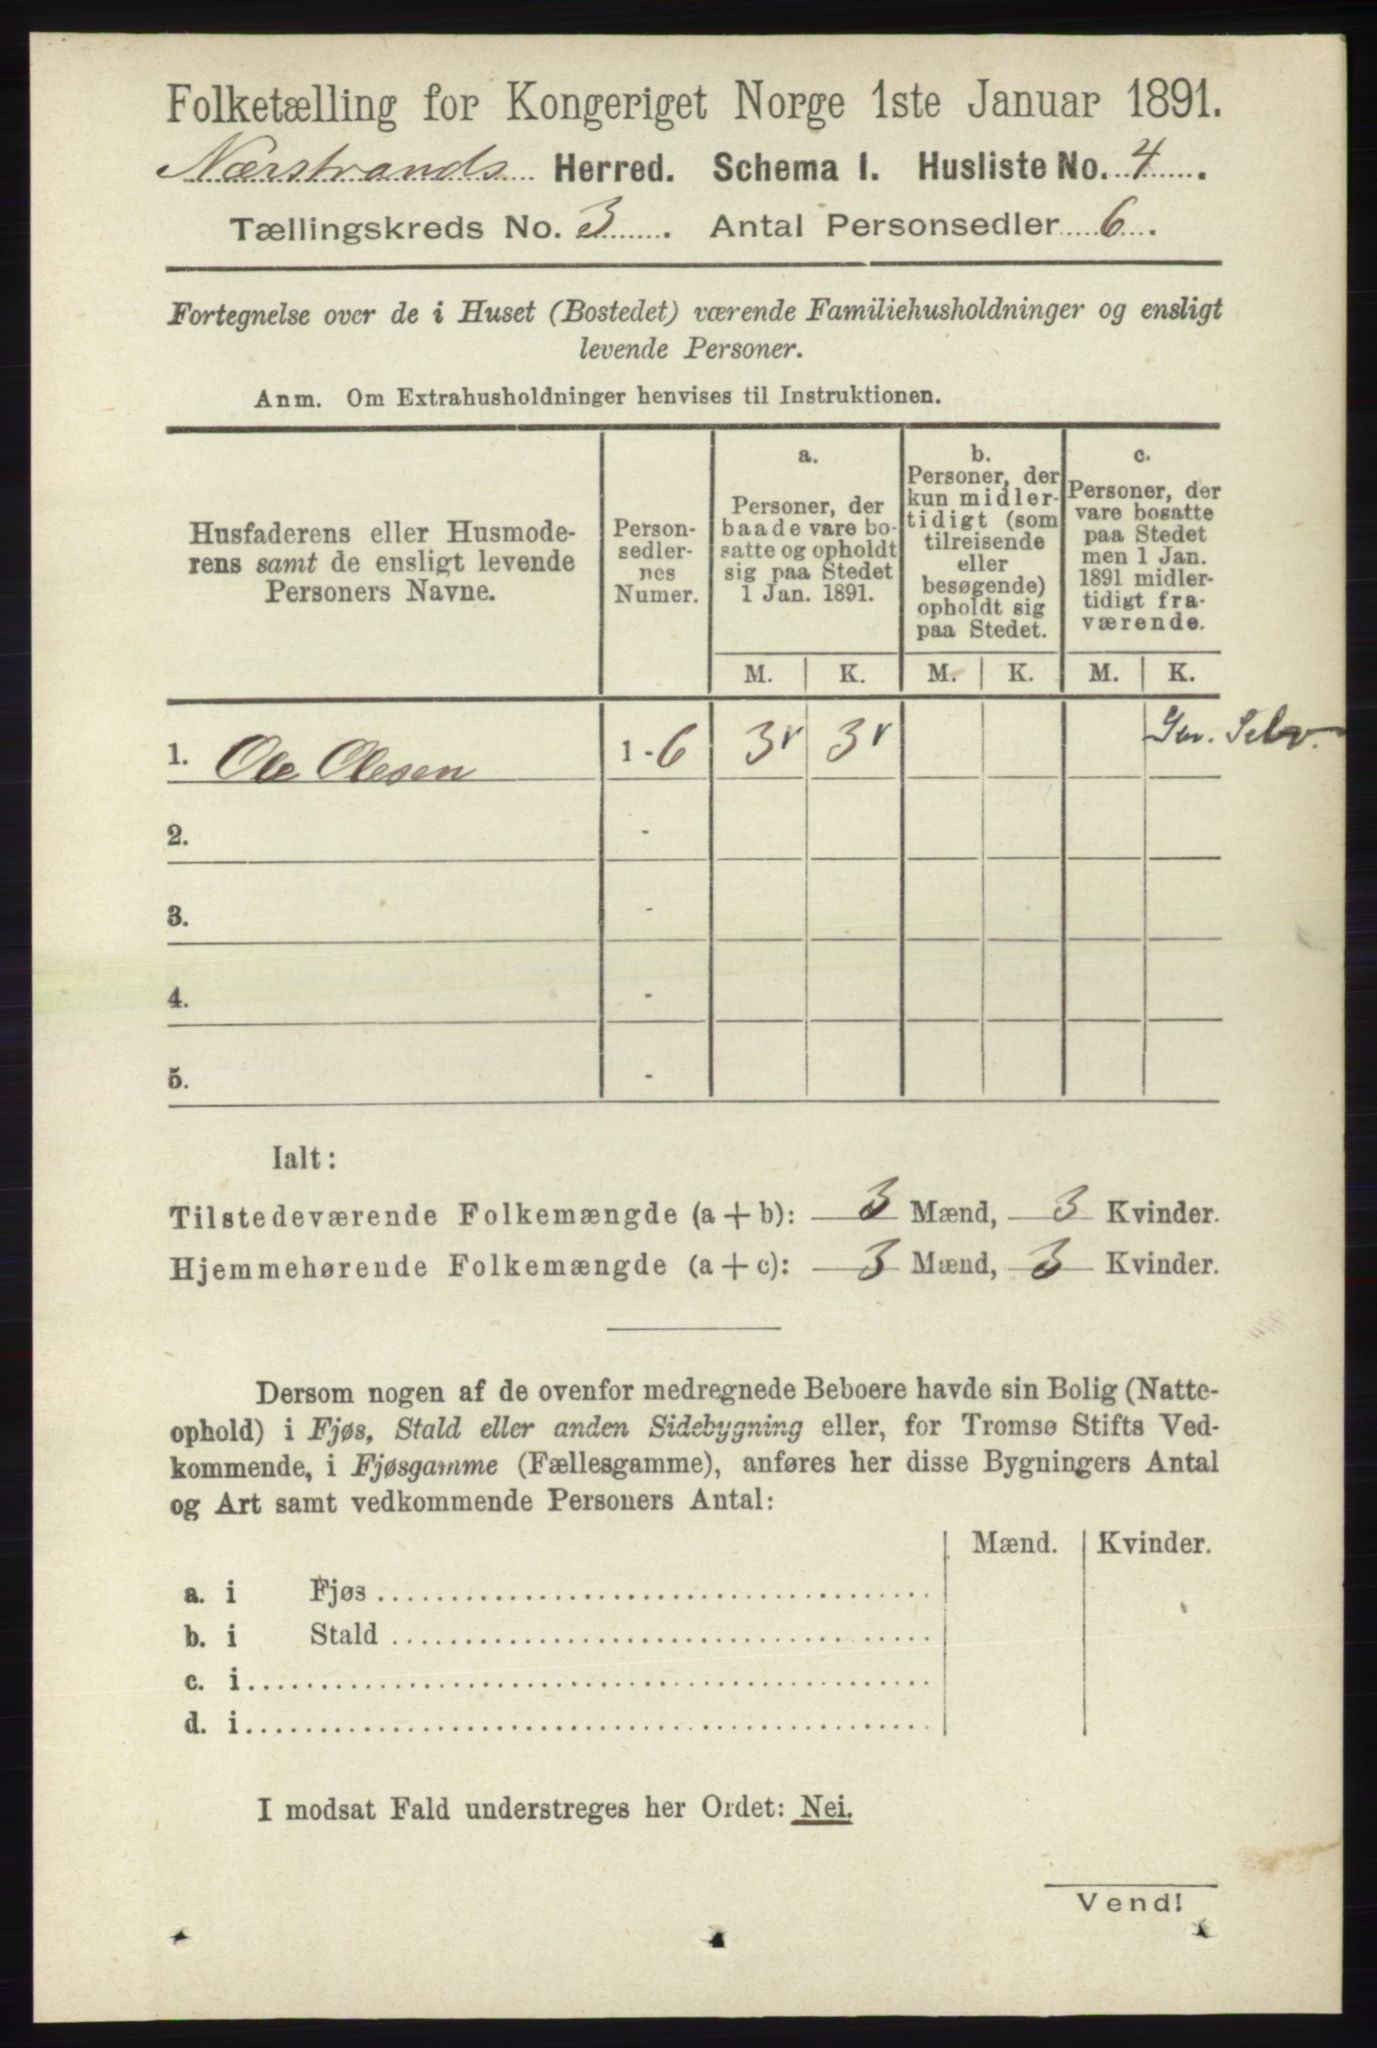 Folketælling for Kongeriget Norge 1ste Januar 1891.
Nærstrands Herred. Schema I. Husliste No. 4.
Tællingskreds No. 3. Antal Personsedler 6.
Fortegnelse over de i Huset (Bostedet) værende Familiehusholdninger og ensligt
levende Personer.
Anm. Om Extrahusholdninger henvises til Instruktionen.
Husfaderens eller Husmode-
rens samt de ensligt levende
Personers Navne.
Person-
sedler-
nes
Numer.
a.
Personer, der
baade vare bo-
satte og opholdt
sig paa Stedet
1 Jan. 1891.
b.
Personer, der
kun midler-
tidigt (som
tilreisende
eller
besøgende)
opholdt sig
paa Stedet.
c.
Personer, der
vare bosatte
paa Stedet
men 1 Jan.
1891 midler-
tidigt fra-
værende.
M. K. M. K. M. K.
1. Ole Olesen 1 - 6 3 3
2. -
3. -
4. -
5. -
Ialt:
Tilstedeværende Folkemængde (a + b): 3 Mænd, 3 Kvinder.
Hjemmehørende Folkemængde (a + c): 3 Mænd, 3 Kvinder.
Dersom nogen af de ovenfor medregnede Beboere havde sin Bolig (Natte-
ophold) i Fjøs, Stald eller anden Sidebygning eller, for Tromsø Stifts Ved-
kommende, i Fjøsgamme (Fællesgamme), anføres her disse Bygningers Antal
og Art samt vedkommende Personers Antal:
Mænd. Kvinder.
a. i Fjøs
b. i Stald
c. i
d. i
I modsat Fald understreges her Ordet: Nei.
Vend!